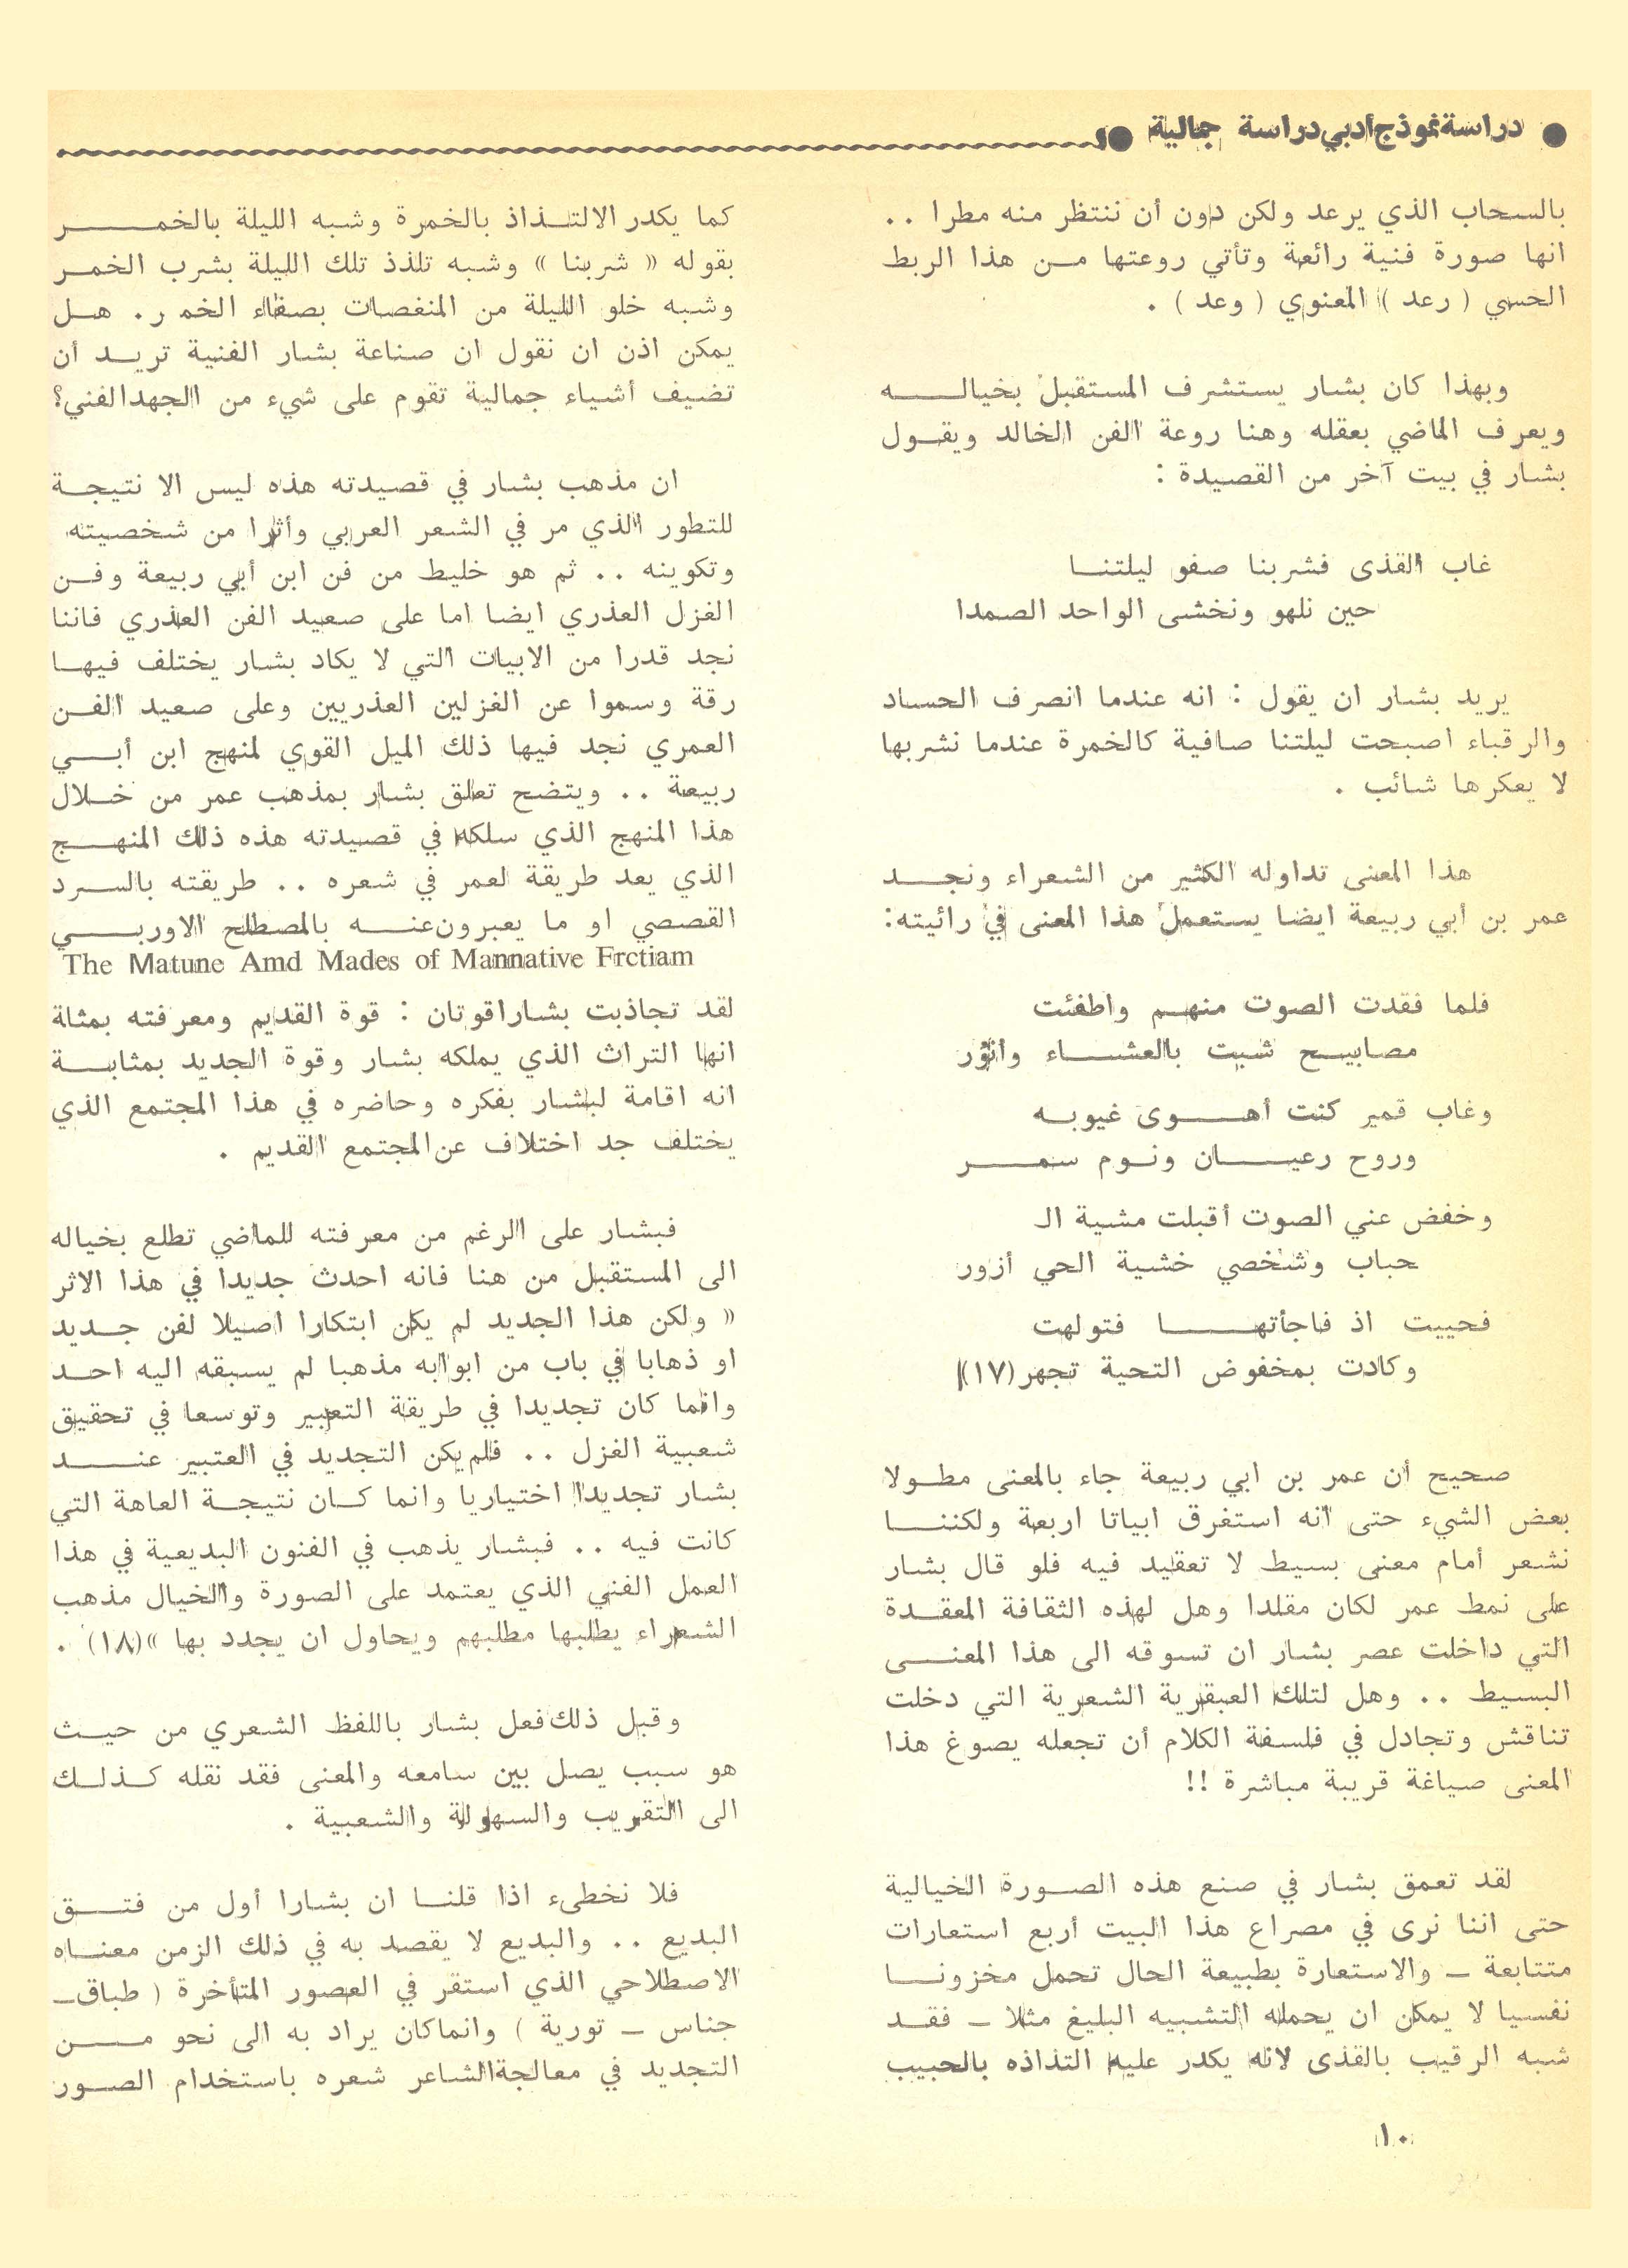 ● دراسة نموذج أدبي دراسة جمالية ●
بالسحاب الذي يرعد ولكن دون أن ننتظر منه مطرا ..
انها صورة فنية رائعة وتأتي روعتها من هذا الربط
الحسي ( رعد ) المعنوي ( وعد ) .
وبهذا كان بشار يستشرف المستقبل بخياله
ويعرف الماضي بعقله وهنا روعة الفن الخالد ويقول
بشار في بيت آخر من القصيدة :
غاب القذى فشربنا صفو ليلتنا
حين نلهو ونخشى الواحد الصمدا
يريد بشار ان يقول : انه عندما انصرف الحساد
والرقباء اصبحت ليلتنا صافية كالخمرة عندما نشربها
لا يعكرها شائب .
هذا المعنى تداوله الكثير من الشعراء ونجد
عمر بن أبي ربيعة ايضا يستعمل هذا المعنى في رائيته:
فلما فقدت الصوت منهم واطفئت
مصابيح شبت بالعشاء وانؤر
وغاب قمير كنت أهوى غيوبه
وروح رعيان ونوم سمر
وخفض عني الصوت أقبلت مشية الـ
حباب وشخصي خشية الحي أزور
فحييت اذ فاجأتها فتولهت
وكادت بمخفوض التحية تجهر(١٧)
صحيح أن عمر بن ابي ربيعة جاء بالمعنى مطولا
بعض الشيء حتى انه استغرق ابياتا اربعة ولكننا
نشعر أمام معنى بسيط لا تعقيد فيه فلو قال بشار
على نمط عمر لكان مقلدا وهل لهذه الثقافة المعقدة
التي داخلت عصر بشار ان تسوقه الى هذا المعنى
البسيط .. وهل لتلك العبقرية الشعرية التي دخلت
تناقش وتجادل في فلسفة الكلام أن تجعله يصوغ هذا
المعنى صياغة قريبة مباشرة !!
لقد تعمق بشار في صنع هذه الصورة الخيالية
حتى اننا نرى في مصراع هذا البيت أربع استعارات
متتابعة – والاستعارة بطبيعة الحال تحمل مخزونا
نفسيا لا يمكن ان يحمله التشبيه البليغ مثلا – فقد
شبه الرقيب بالقذى لانه يكدر عليه التذاذه بالحبيب
كما يكدر الالتذاذ بالخمرة وشبه الليلة بالخمر
بقوله « شربنا » وشبه تلذذ تلك الليلة بشرب الخمر
وشبه خلو الليلة من المنغصات بصفاء الخمر . هل
يمكن اذن ان نقول ان صناعة بشار الفنية تريد أن
تضيف أشياء جمالية تقوم على شيء من الجهد الفني؟
ان مذهب بشار في قصيدته هذه ليس الا نتيجة
للتطور الذي مر في الشعر العربي وأثرا من شخصيته
وتكوينه .. ثم هو خليط من فن ابن أبي ربيعة وفن
الغزل العذري ايضا اما على صعيد الفن العذري فاننا
نجد قدرا من الابيات التي لا يكاد بشار يختلف فيها
رقة وسموا عن الغزلين العذريين وعلى صعيد الفن
العمري نجد فيها ذلك الميل القوي لمنهج ابن أبي
ربيعة .. ويتضح تعلق بشار بمذهب عمر من خلال
هذا المنهج الذي سلكه في قصيدته هذه ذلك المنهج
الذي يعد طريقة لعمر في شعره .. طريقته بالسرد
القصصي او ما يعبرون عنه بالمصطلح الاوربي
The Matune Amd Mades of Mannative Frctiam
لقد تجاذبت بشارا قوتان : قوة القديم ومعرفته بمثلة
انها التراث الذي يملكه بشار وقوة الجديد بمثابة
انه اقامة لبشار بفكره وحاضره في هذا المجتمع الذي
يختلف جد اختلاف عن المجتمع القديم .
فبشار على الرغم من معرفته للماضي تطلع بخياله
الى المستقبل من هنا فانه احدث جديدا في هذا الاثر
« ولكن هذا الجديد لم يكن ابتكارا اصيلا لفن جديد
او ذهابا في باب من ابوابه مذهبا لم يسبقه اليه احد
وانما كان تجديدا في طريقة التعبير وتوسعا في تحقيق
شعبية الغزل .. فلم يكن التجديد في العتبير عند
بشار تجديدا اختياريا وانما كان نتيجة العاهة التي
كانت فيه .. فبشار يذهب في الفنون البديعية في هذا
العمل الفني الذي يعتمد على الصورة والخيال مذهب
الشعراء يطلبها مطلبهم ويحاول ان يجدد بها »(١٨) .
وقبل ذلك فعل بشار باللفظ الشعري من حيث
هو سبب يصل بين سامعه والمعنى فقد نقله كذلك
الى التقريب والسهولة والشعبية .
فلا نخطىء اذا قلنا ان بشارا أول من فتق
البديع .. والبديع لا يقصد به في ذلك الزمن معناه
الاصطلاحي الذي استقر في العصور المتأخرة ( طباق –
جناس – تورية ) وانما كان يراد به الى نحو من
التجديد في معالجة الشاعر شعره باستخدام الصور
١٠